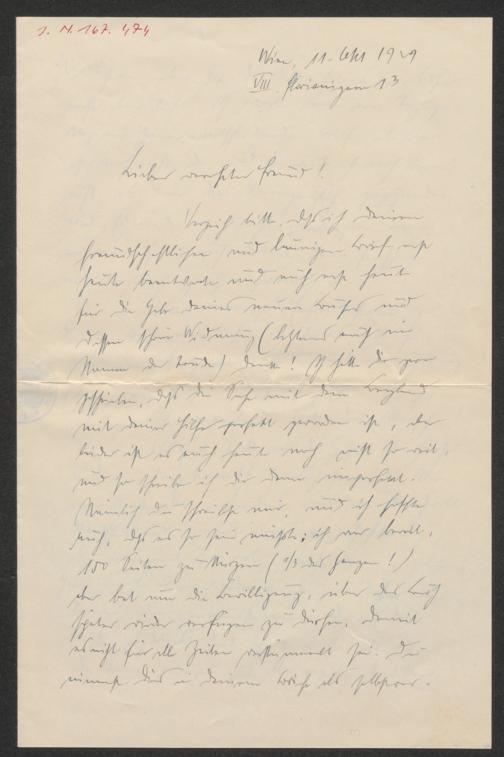 J. N. 167.474
Wien, 11. Okt 1929
VIII. Florianigasse 13
Lieber verehrter Freund!
Verzeih bitte, daß ich deinen
freundschaftlichen und launigen Brief erst
heute beantworte und auch erst heute
für die Gabe deines neuen Buches und
dessen schöne Widmung (letztens auch im
Namen der) danke! Ich hätte dir gern
geschrieben, daß die Sache mit dem Bergland
mit deiner Hilfe perfekt geworden ist, aber
leider ist es auch heute noch nicht so weit
und so schreibe ich dir denn imperfekt.
Nämlich du schreibst mir, und ich hoffte
auch, daß es so sein müßte: ich war bereit,
100 Seiten zu kürzen (1/3 des Ganzen!)
aber bat um die Bewilligung, über das Buch
später wieder verfügen zu dürfen, damit
es nicht für alle Zeiten verstümmelt sei. Du
nimmst dies in deinem Briefe als selbstver-